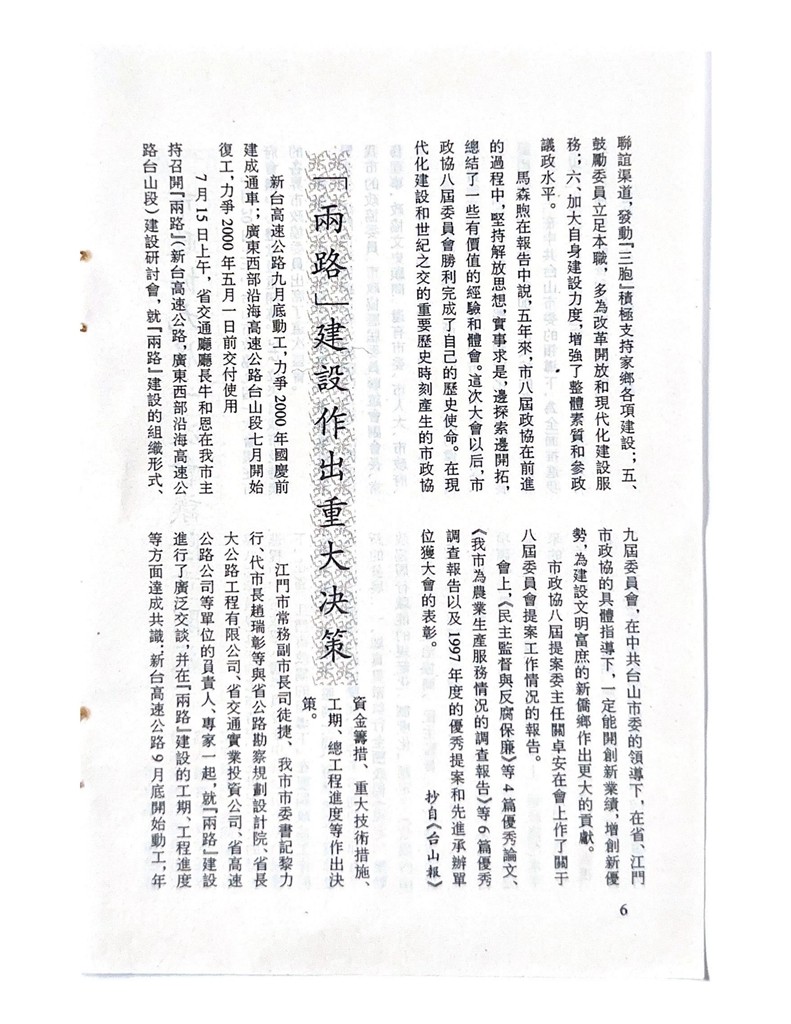 聯誼渠道，發動『三胞』積極支持家鄉各項建設；五、
鼓勵委員立足本職，多為改革開放和現代化建設服
務；六、加大自身建設力度，增強了整體素質和參政
議政水平。
馬森煦在報告中說，五年來，市八屆政協在前進
的過程中，堅持解放思想，實事求是，邊探索邊開拓，
總結了一些有價值的經驗和體會。這次大會以后，市
政協八屆委員會勝利完成了自己的歷史使命。在現
代化建設和世紀之交的重要歷史時刻產生的市政協
九屆委員會，在中共台山市委的領導下，在省、江門
市政協的具體指導下，一定能開創新業績，增創新優
勢，為建設文明富庶的新僑鄉作出更大的貢獻。
市政協八屆提案委主任關卓安在會上作了關于
八屆委員會提案工作情況的報告。
會上，《民主監督與反腐保廉》等4篇優秀論文、
《我市為農業生產服務情況的調查報告》等6篇優秀
調查報告以及1997年度的優秀提案和先進承辦單
位獲大會的表彰。
抄自《台山報》
「兩路」建設作出重大決策
新台高速公路九月底動工，力爭2000年國慶前
建成通車；廣東西部沿海高速公路台山段七月開始
復工，力爭2000年五月一日前交付使用
7月15日上午，省交通廳廳長牛和恩在我市主
持召開『兩路』（新台高速公路，廣東西部沿海高速公
路台山段）建設研討會，就『兩路』建設的組織形式、
資金籌措、重大技術措施、
工期、總工程進度等作出決
策。
江門市常務副市長司徒捷、我市市委書記黎力
行、代市長趙瑞彰等與省公路勘察規劃設計院、省長
大公路工程有限公司、省交通實業投資公司、省高速
公路公司等單位的負責人、專家一起，就『兩路』建設
進行了廣泛交談，并在『兩路』建設的工期、工程進度
等方面達成共識：新台高速公路9月底開始動工，年
6